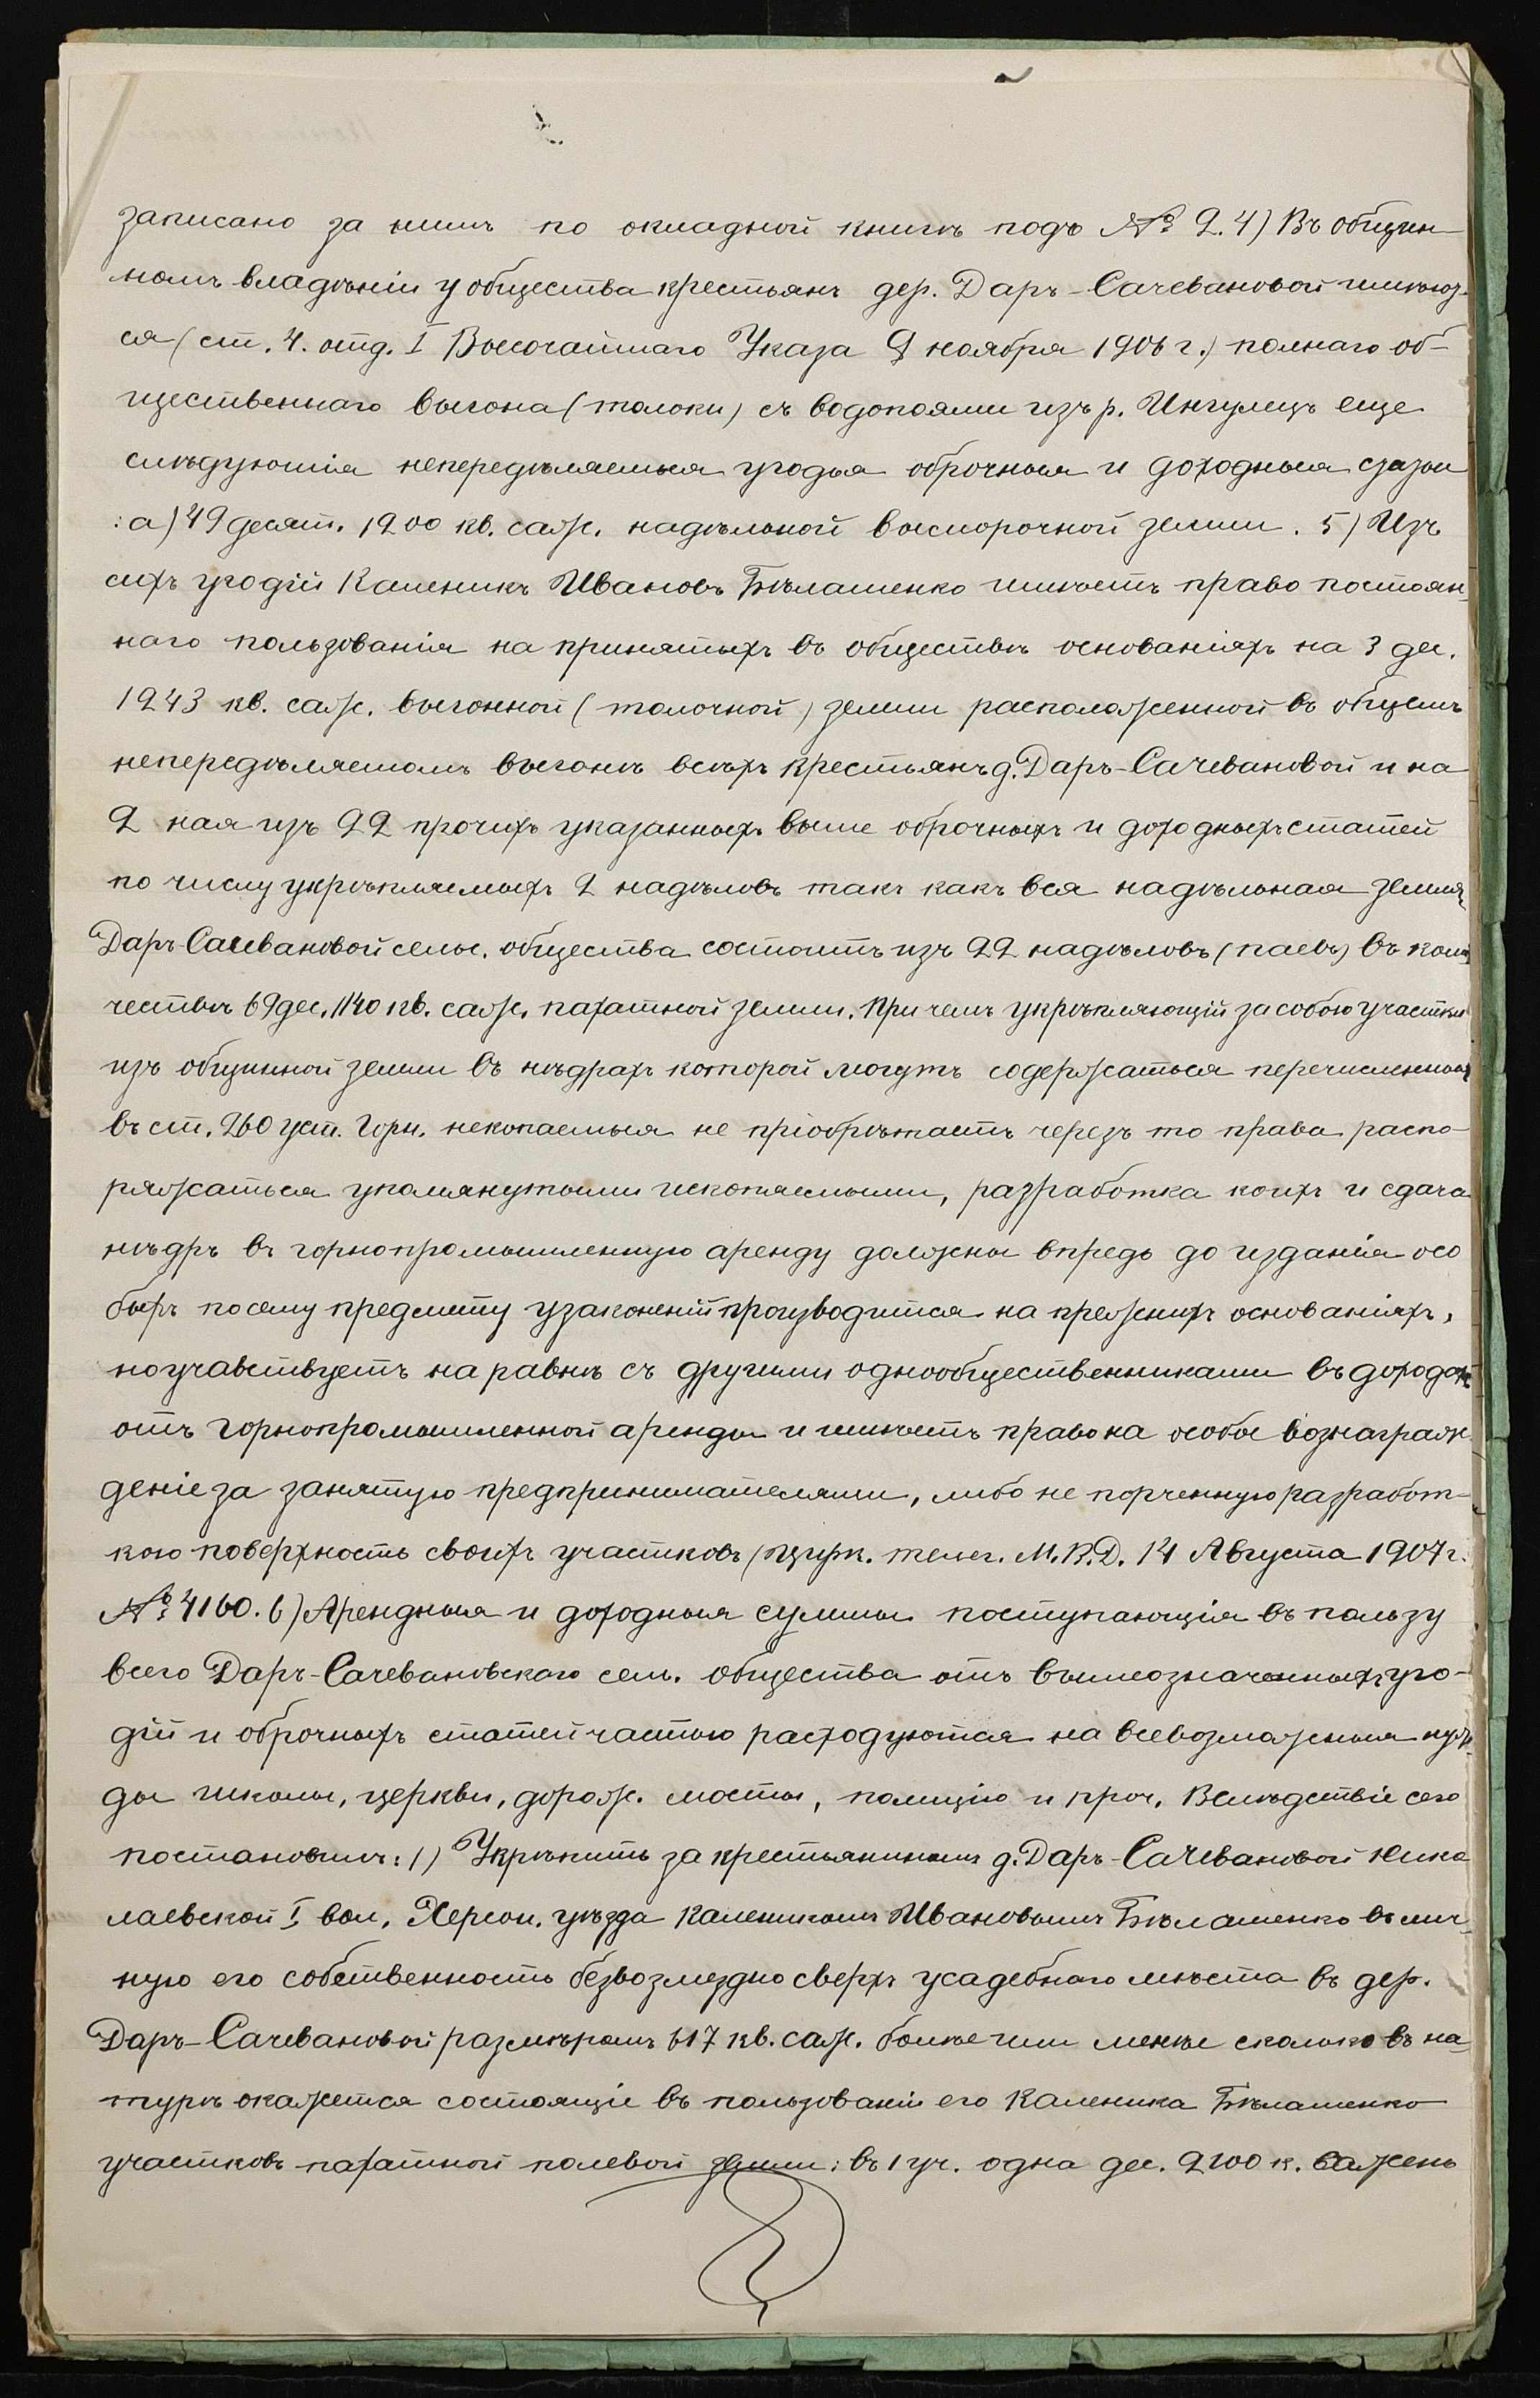 записано за нимъ по окладной книгѣ подъ № 2. 4) Въ общин-
номъ владѣніи у общества крестьянъ дер. Даръ-Сачевановой имѣют-
ся (ст. 4. отд. I Высочайшаго Указа 9 ноября 1906 г.) полнаго об-
щественнаго выгона (толоки) съ водопоями изъ р. Ингулецъ еще
слѣдующія непередѣляемыя угодья оброчныя и доходныя
: а) 49 десят. 1200 кв. саж. надѣльной высорочной земли. 5) Изъ
сихъ угодій Каленикъ Ивановъ Бѣлашенко имѣетъ право постоян-
наго пользованія на принятыхъ въ обществѣ основаніяхъ на 3 дес.
1243 кв. саж. выгонной (толочной) земли расположенной въ общемъ
непередѣляемомъ выгонѣ всѣхъ крестьянъ д. Даръ-Сачевановой и на
2 ная изъ 22 прочихъ указанныхъ выше оброчныхъ и доходныхъ статей
по числу укрѣпляемыхъ 2 надѣловъ такъ какъ вся надѣльная земля
Даръ-Сачевановой сельс. общества состоитъ изъ 22 надѣловъ (паевъ) въ коли
чествѣ 69 дес. 1140 кв. саж. пахатной земли. При чемъ укрѣпляющій за собою участки
изъ общинной земли въ нѣдрахъ которой могутъ содержаться перечисленныя
въ ст. 260 уст. Горн. ископаемыя не пріобрѣтаетъ черезъ то права распо-
ряжаться упомянутыми ископаемыми, разработка коихъ и сдача
нѣдръ въ горнопромышленную аренду должны впредь до изданія осо
быхъ по сему предмету узаконеній производится на прежнихъ основаніяхъ,
но учавствуетъ на равнѣ съ другими однообщественниками въ доходахъ
отъ горнопромышленной аренды и имѣетъ право на особое вознаграж-
деніе за занятую предпринимателями, либо не порченную разработ-
кою поверхность своихъ участковъ (цирк. телег. М.В.Д. 14 Августа 1907 г.
№ 4160. 6) Арендныя и доходныя суммы поступающія въ пользу
всего Даръ-Сачевановскаго сель. общества отъ вышеозначенныхъ уго-
дій и оброчныхъ статей частью расходуются на всевозможныя нуж-
ды школы, церкви, дорож. мосты, полицію и проч. Вслѣдствіе сего
постановилъ: 1) Укрѣпить за крестьяниномъ д. Даръ-Сачевановой Нико
лаевской I вол. Херсон. уѣзда Каленикомъ Ивановымъ Бѣлашенко въ лич-
ную его собственность безвозмездно сверхъ усадебнаго мѣста въ дер.
Даръ-Сачевановой размѣромъ 617 кв. саж. болѣе или менѣе сколько въ на-
турѣ окажется состоящіе въ пользованіи его Каленика Бѣлашенко
участковъ пахатной полевой земли: въ 1 уч. одна дес. 2100 к. сажень